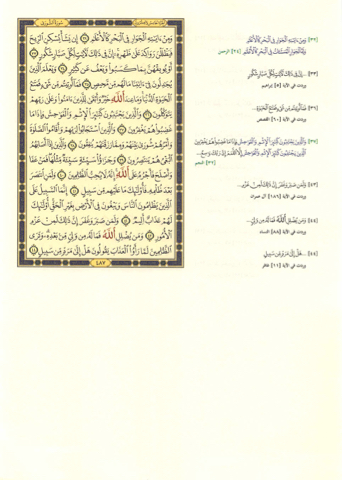 وَمِنْ ءَايَٰتِهِ ٱلْجَوَارِ فِى ٱلْبَحْرِ كَٱلْأَعْلَٰمِ ٣٢ إِن يَشَأْ يُسْكِنِ ٱلرِّيحَ
فَيَظْلَلْنَ رَوَاكِدَ عَلَىٰ ظَهْرِهِۦٓ إِنَّ فِى ذَٰلِكَ لَءَايَٰتٍ لِّكُلِّ صَبَّارٍ شَكُورٍ ٣٣
أَوْ يُوبِقْهُنَّ بِمَا كَسَبُوا۟ وَيَعْفُ عَن كَثِيرٍ ٣٤ وَيَعْلَمَ ٱلَّذِينَ
يُجَٰدِلُونَ فِىٓ ءَايَٰتِنَا مَا لَهُم مِّن مَّحِيصٍ ٣٥ فَمَآ أُوتِيتُم مِّن شَىْءٍ فَمَتَٰعُ
ٱلْحَيَوٰةِ ٱلدُّنْيَا وَمَا عِندَ ٱللَّهِ خَيْرٌ وَأَبْقَىٰ لِلَّذِينَ ءَامَنُوا۟ وَعَلَىٰ رَبِّهِمْ
يَتَوَكَّلُونَ ٣٦ وَٱلَّذِينَ يَجْتَنِبُونَ كَبَٰٓئِرَ ٱلْإِثْمِ وَٱلْفَوَٰحِشَ وَإِذَا مَا
غَضِبُوا۟ هُمْ يَغْفِرُونَ ٣٧ وَٱلَّذِينَ ٱسْتَجَابُوا۟ لِرَبِّهِمْ وَأَقَامُوا۟ ٱلصَّلَوٰةَ
وَأَمْرُهُمْ شُورَىٰ بَيْنَهُمْ وَمِمَّا رَزَقْنَٰهُمْ يُنفِقُونَ ٣٨ وَٱلَّذِينَ إِذَآ أَصَابَهُمُ
ٱلْبَغْىُ هُمْ يَنتَصِرُونَ ٣٩ وَجَزَٰٓؤُا۟ سَيِّئَةٍ سَيِّئَةٌ مِّثْلُهَا فَمَنْ عَفَا
وَأَصْلَحَ فَأَجْرُهُۥ عَلَى ٱللَّهِ إِنَّهُۥ لَا يُحِبُّ ٱلظَّٰلِمِينَ ٤٠ وَلَمَنِ ٱنتَصَرَ
بَعْدَ ظُلْمِهِۦ فَأُو۟لَٰٓئِكَ مَا عَلَيْهِم مِّن سَبِيلٍ ٤١ إِنَّمَا ٱلسَّبِيلُ عَلَى
ٱلَّذِينَ يَظْلِمُونَ ٱلنَّاسَ وَيَبْغُونَ فِى ٱلْأَرْضِ بِغَيْرِ ٱلْحَقِّ أُو۟لَٰٓئِكَ
لَهُمْ عَذَابٌ أَلِيمٌ ٤٢ وَلَمَن صَبَرَ وَغَفَرَ إِنَّ ذَٰلِكَ لَمِنْ عَزْمِ
ٱلْأُمُورِ ٤٣ وَمَن يُضْلِلِ ٱللَّهُ فَمَا لَهُۥ مِن وَلِىٍّ مِّنۢ بَعْدِهِۦ وَتَرَى
ٱلظَّٰلِمِينَ لَمَّا رَأَوُا۟ ٱلْعَذَابَ يَقُولُونَ هَلْ إِلَىٰ مَرَدٍّ مِّن سَبِيلٍ ٤٤
٤٨٧
[٣٢] وَمِنْ ءَايَٰتِهِ ٱلْجَوَارِ فِى ٱلْبَحْرِ كَٱلْأَعْلَٰمِ
وَلَهُ ٱلْجَوَارِ ٱلْمُنشَـَٔاتُ فِى ٱلْبَحْرِ كَٱلْأَعْلَٰمِ [٢٤] الرحمن
[٣٣] ...إِنَّ فِى ذَٰلِكَ لَءَايَٰتٍ لِّكُلِّ صَبَّارٍ شَكُورٍ
وردت في الآية [٥] إبراهيم
[٣٦] فَمَآ أُوتِيتُم مِّن شَىْءٍ فَمَتَٰعُ ٱلْحَيَوٰةِ...
وردت في الآية [٦٠] القصص
[٣٧] وَٱلَّذِينَ يَجْتَنِبُونَ كَبَٰٓئِرَ ٱلْإِثْمِ وَٱلْفَوَٰحِشَ وَإِذَا مَا غَضِبُوا۟ هُمْ يَغْفِرُونَ
ٱلَّذِينَ يَجْتَنِبُونَ كَبَٰٓئِرَ ٱلْإِثْمِ وَٱلْفَوَٰحِشَ إِلَّا ٱللَّمَمَ إِنَّ رَبَّكَ وَٰسِعُ...
[٣٢] النجم
[٤٣] وَلَمَن صَبَرَ وَغَفَرَ إِنَّ ذَٰلِكَ لَمِنْ عَزْمِ...
وردت في الآية [١٨٦] آل عمران
[٤٤] وَمَن يُضْلِلِ ٱللَّهُ فَمَا لَهُۥ مِن وَلِىٍّ...
وردت في الآية [٨٨] النساء
[٤٤] ...هَلْ إِلَىٰ مَرَدٍّ مِّن سَبِيلٍ
وردت في الآية [١١] غافر